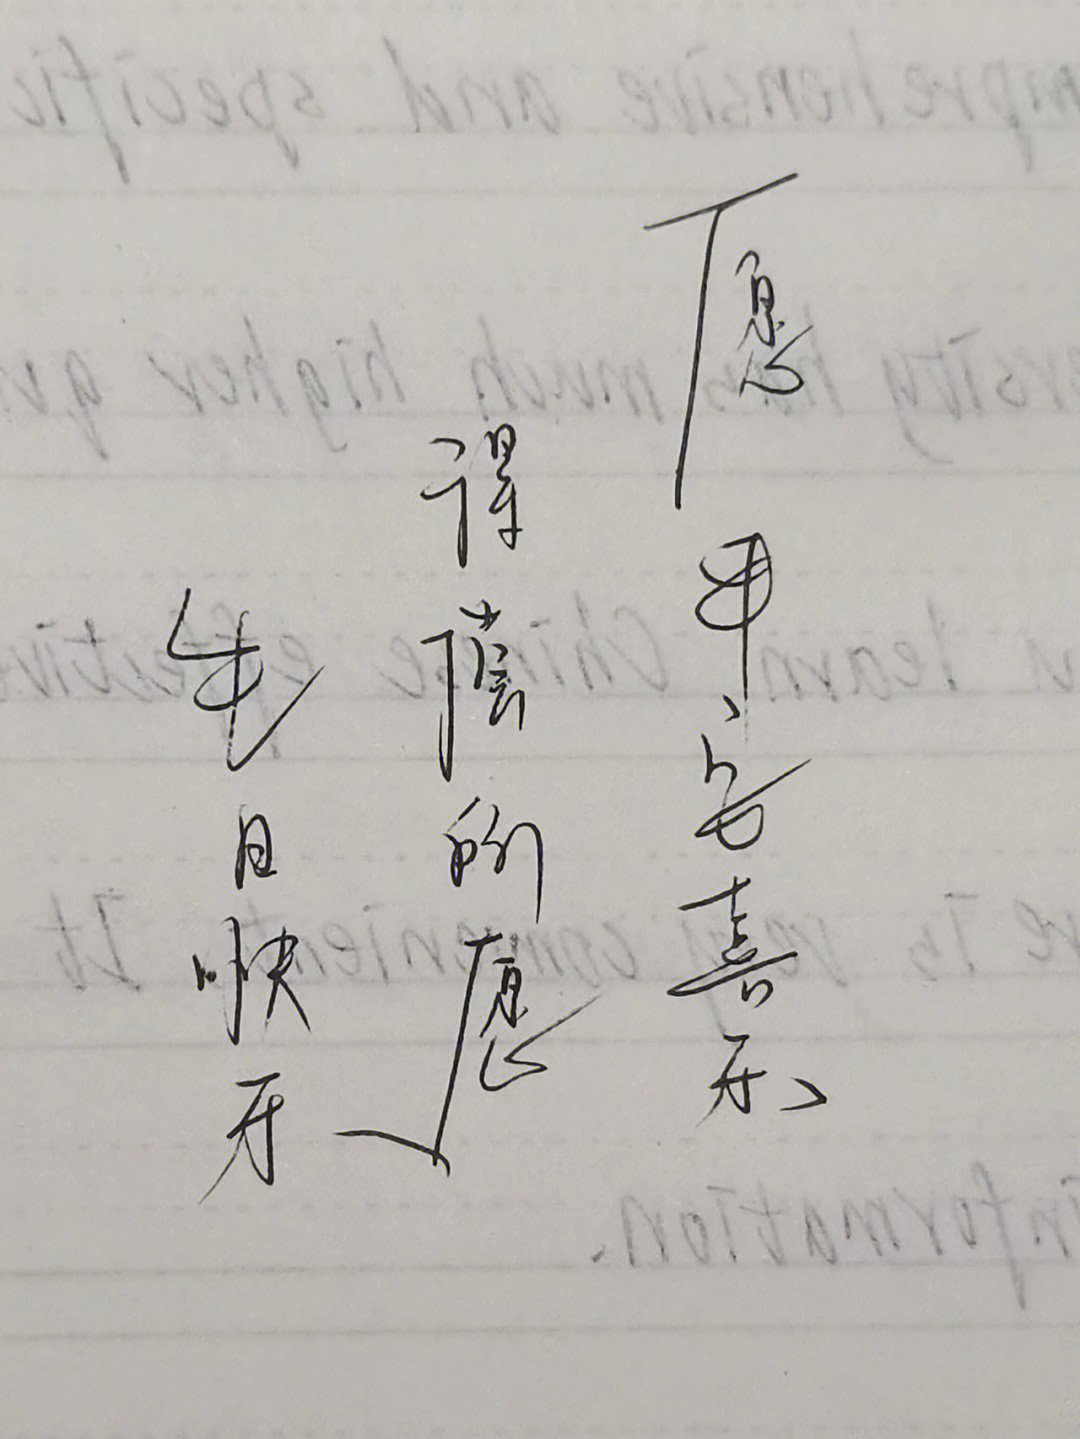 愿平安喜乐
得偿所愿
生日快乐
mprehensive and specific
ersity has much higher qu
n learn Chinese effective
re is very convenient. It
information.